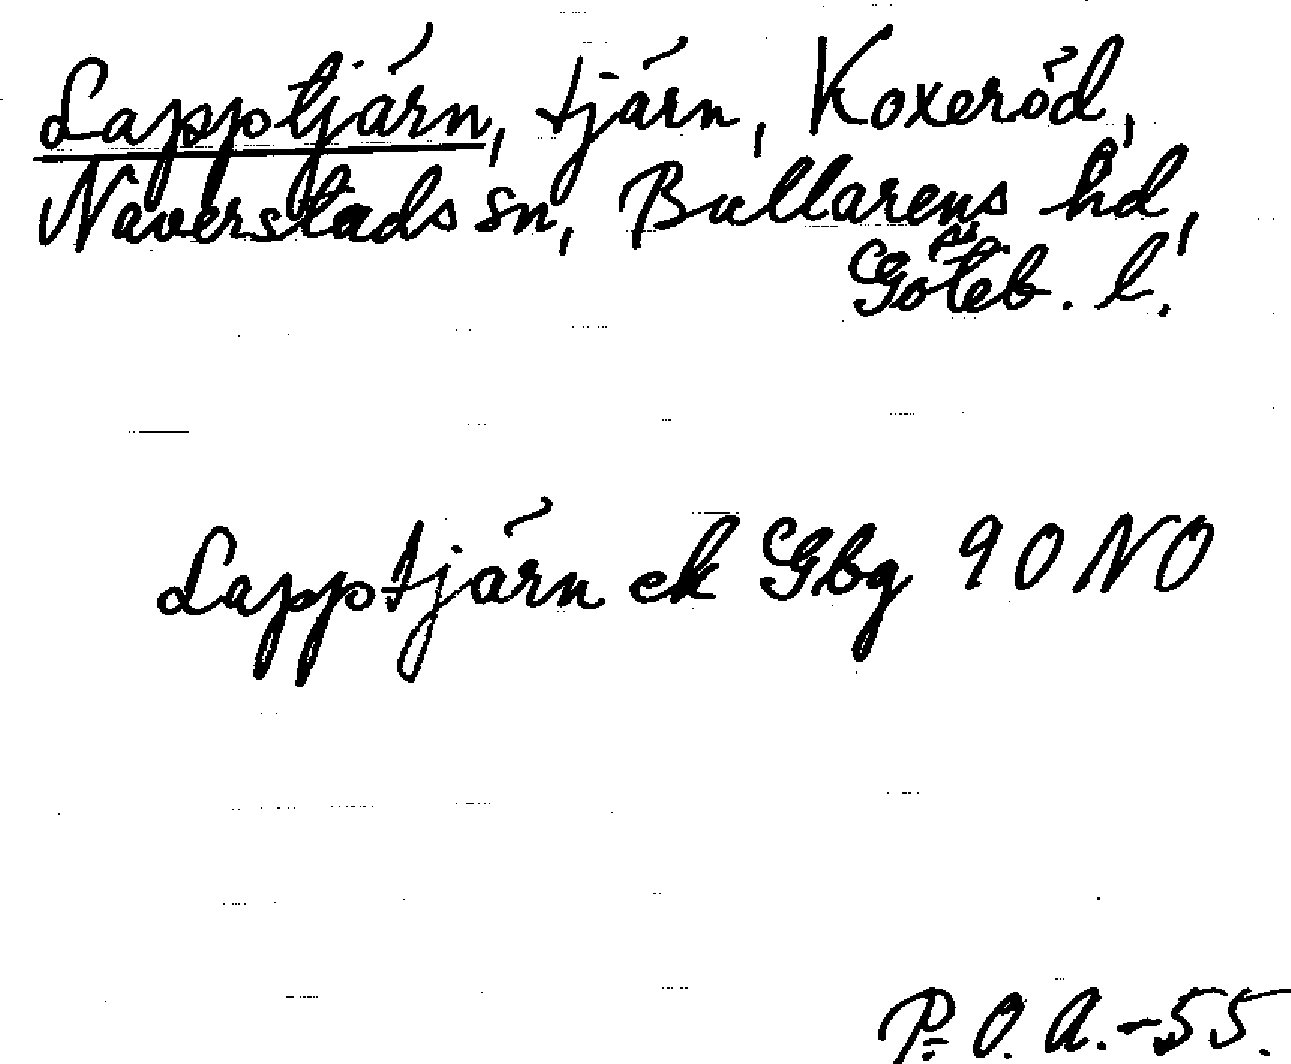 Lapptjärn, tjärn, Koxeröd,
Naverstads sn, Bullarens hd,
Göteb. l.
Lapptjärn ek Gbg 90 NO
P. O. A. -55.